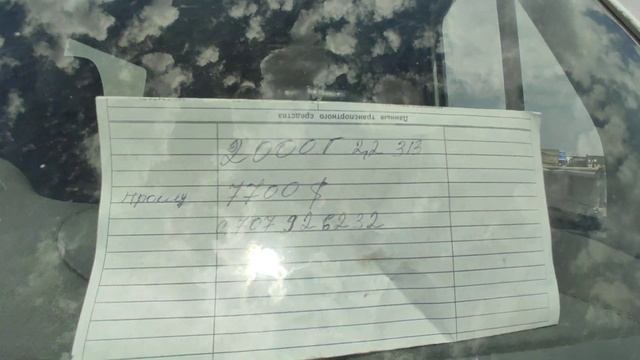 Данные транспортного средства
2000г 2,2 313
прошу 7700$
0707926232